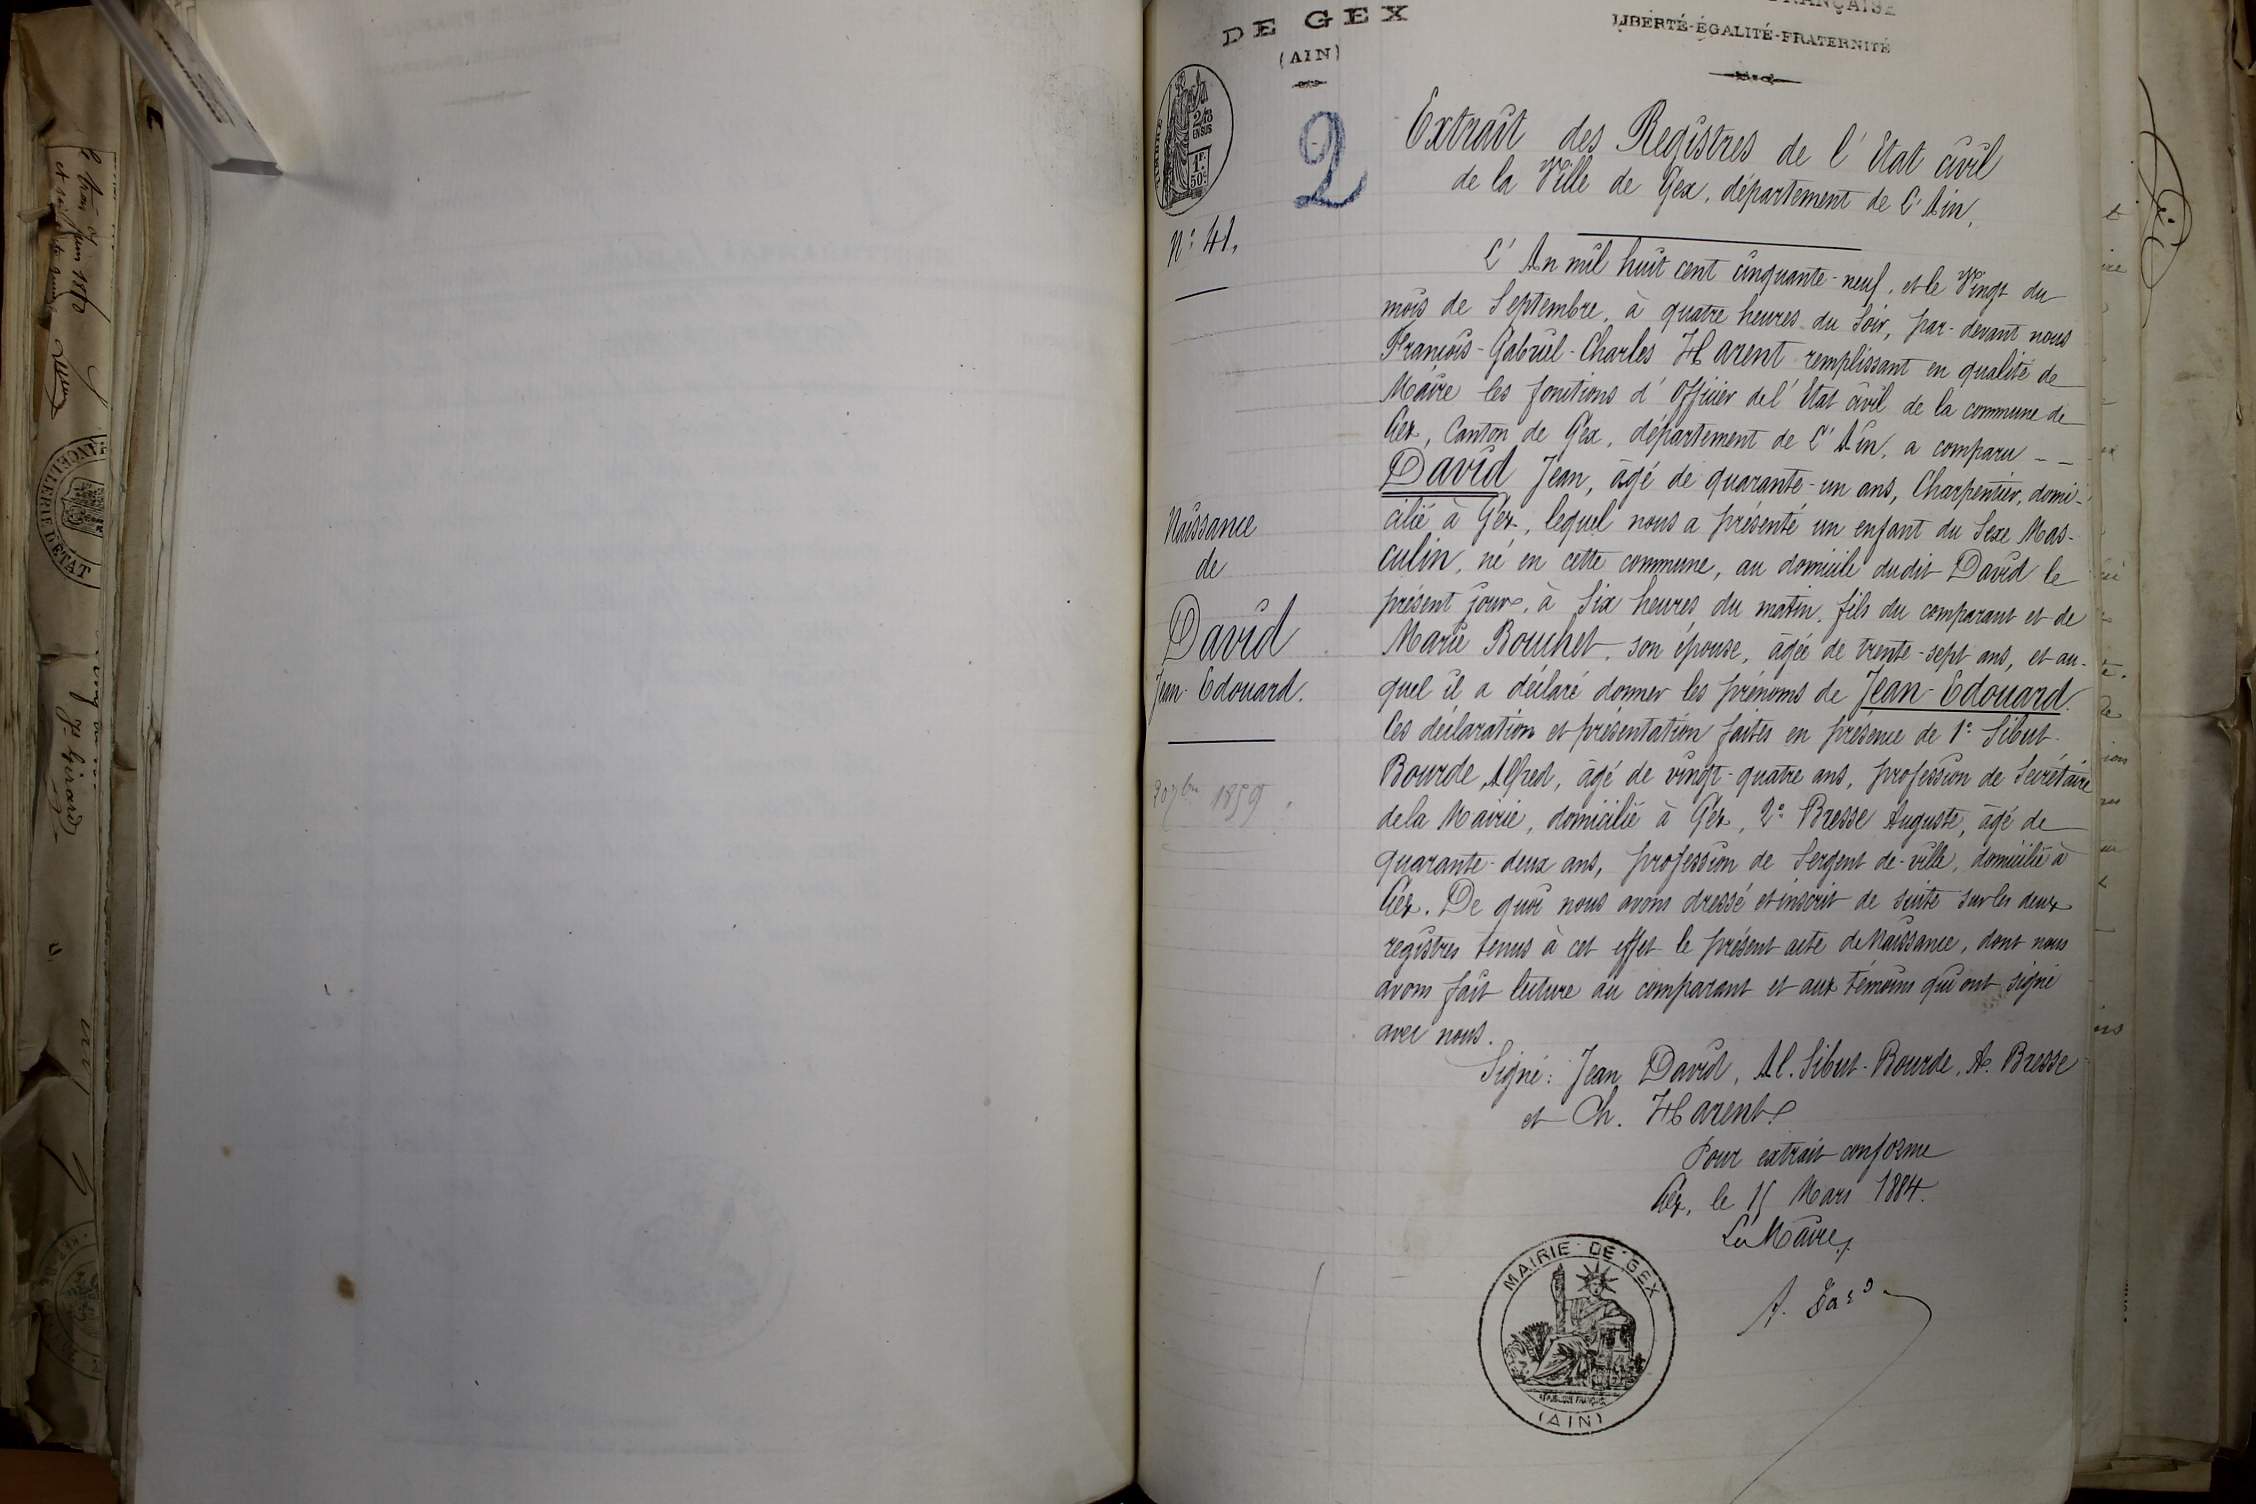 DE GEX
(AIN)
FRANÇAISE
LIBERTÉ-ÉGALITÉ-FRATERNITÉ
TIMBRE
2/10
EN SUS
1F
50c
2
Nº 41.
Extrait des Registres de l'Etat civil
de la Ville de Gex, département de l'Ain.
L'An mil huit cent cinquante-neuf, et le Vingt du
mois de Septembre, à quatre heures du Soir, par-devant nous
François-Gabriel-Charles Harent remplissant en qualité de
Maire les fonctions d'Officier de l'Etat civil de la commune de
Gex, Canton de Gex, département de l'Ain, a comparu - -
David Jean, âgé de quarante-un ans, Charpentier, domi-
cilié à Gex, lequel nous a présenté un enfant du Sexe Mas-
culin, né en cette commune, au domicile dudit David le
présent jour, à Six heures du matin, fils du comparant et de
Marie Bouchet, son épouse, âgée de trente-sept ans, et au-
quel il a déclaré donner les prénoms de Jean-Edouard.
Ces déclaration et présentation faites en présence de 1º Sibut-
Bourde, Alfred, âgé de vingt-quatre ans, profession de Secrétaire
de la Mairie, domicilié à Gex, 2º Bresse Auguste, âgé de
quarante-deux ans, profession de Sergent de-ville, domicilié à
Gex. De quoi nous avons dressé et inscrit de suite sur les deux
registres tenus à cet effet le présent acte de Naissance, dont nous
avons fait lecture au comparant et aux témoins qui ont signé
avec nous.
Signé: Jean David, Al. Sibut-Bourde, A. Bresse
et Ch. Harent.
Pour extrait conforme
Gex, le 15 Mars 1884.
Le Maire,
Naissance
de
David
Jean-Edouard.
20 7bre 1859.
MAIRIE DE GEX
RÉPUBLIQUE FRANÇAISE
(AIN)